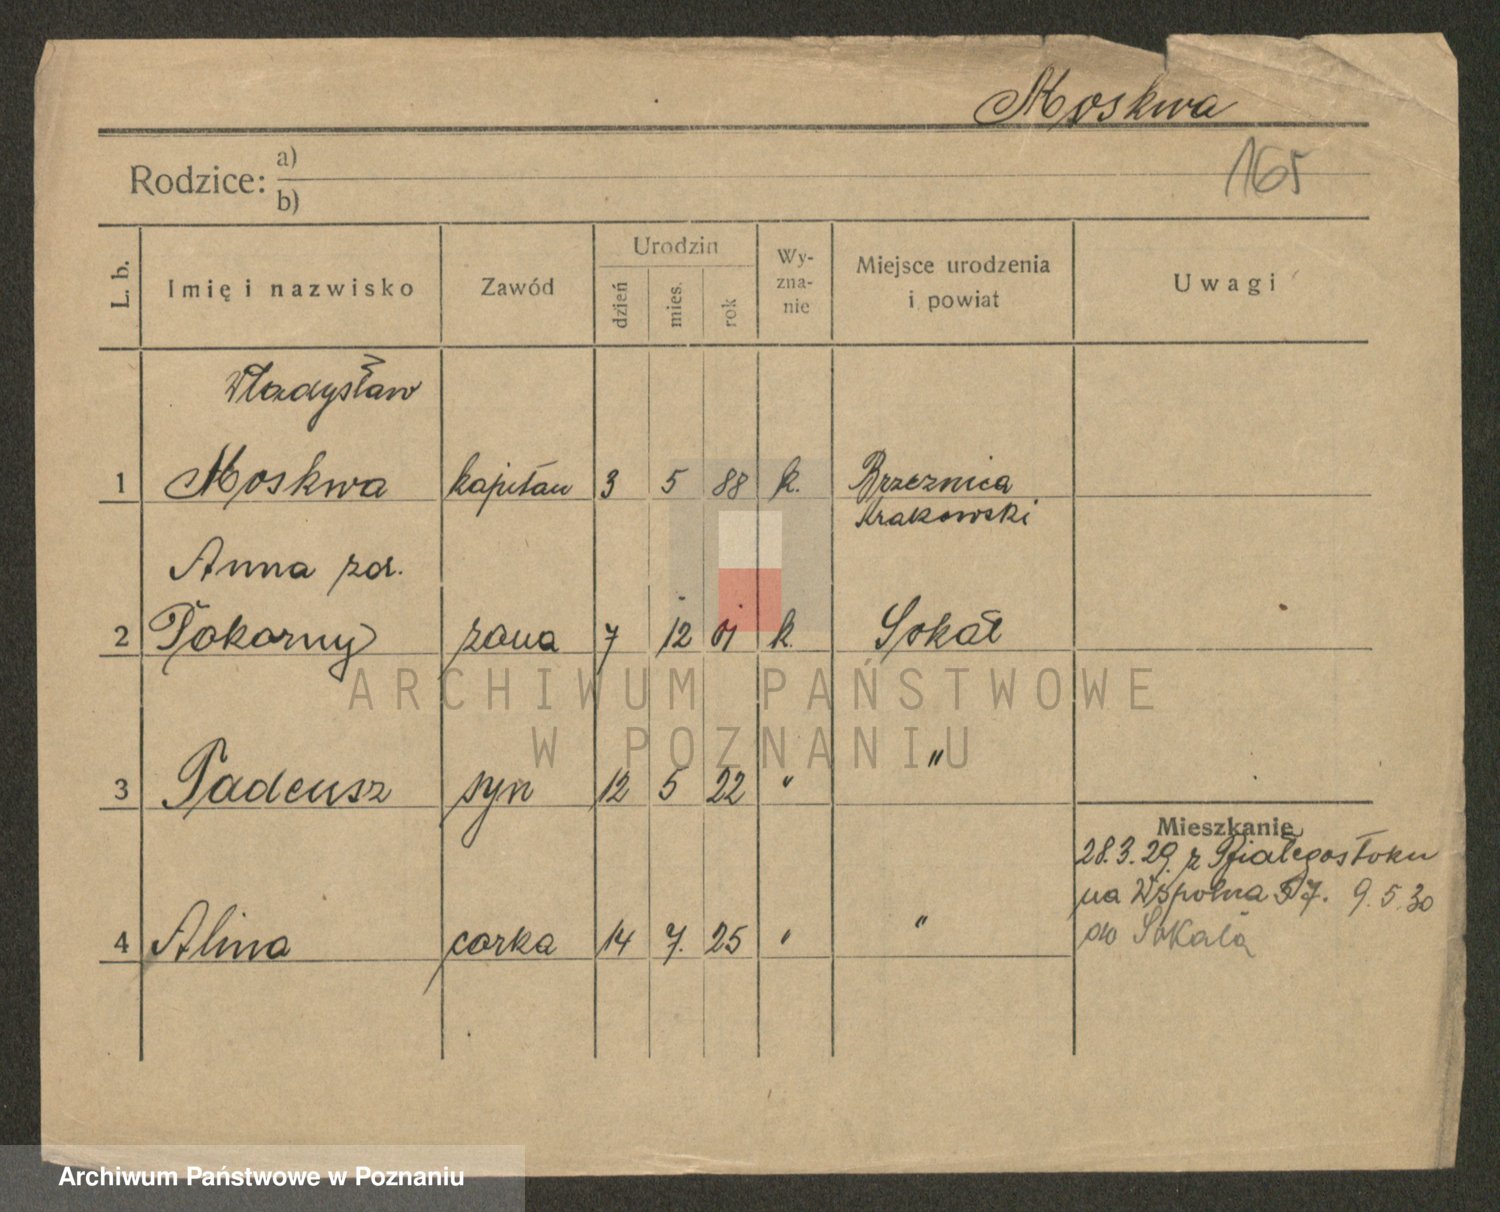 Moskwa
165
Rodzice: a)
b)
L. b.
Imię i nazwisko
Zawód
Urodzin
dzień
mies.
rok
Wy-
zna-
nie
Miejsce urodzenia
i powiat
Uwagi
Władysław
1 Moskwa kapitan 3 5 88 k. Brzeznica
Krakowski
Anna zd.
2 Pokorny żona 7 12 01 k. Sokal
ARCHIWUM PAŃSTWOWE
W POZNANIU
3 Tadeusz syn 12 5 22 " "
Mieszkanie
28.3.29. z Białegostoku
na Wspolna 57. 9.5.30
4 Alina corka 14 7. 25 " "
do Sokala
Archiwum Państwowe w Poznaniu